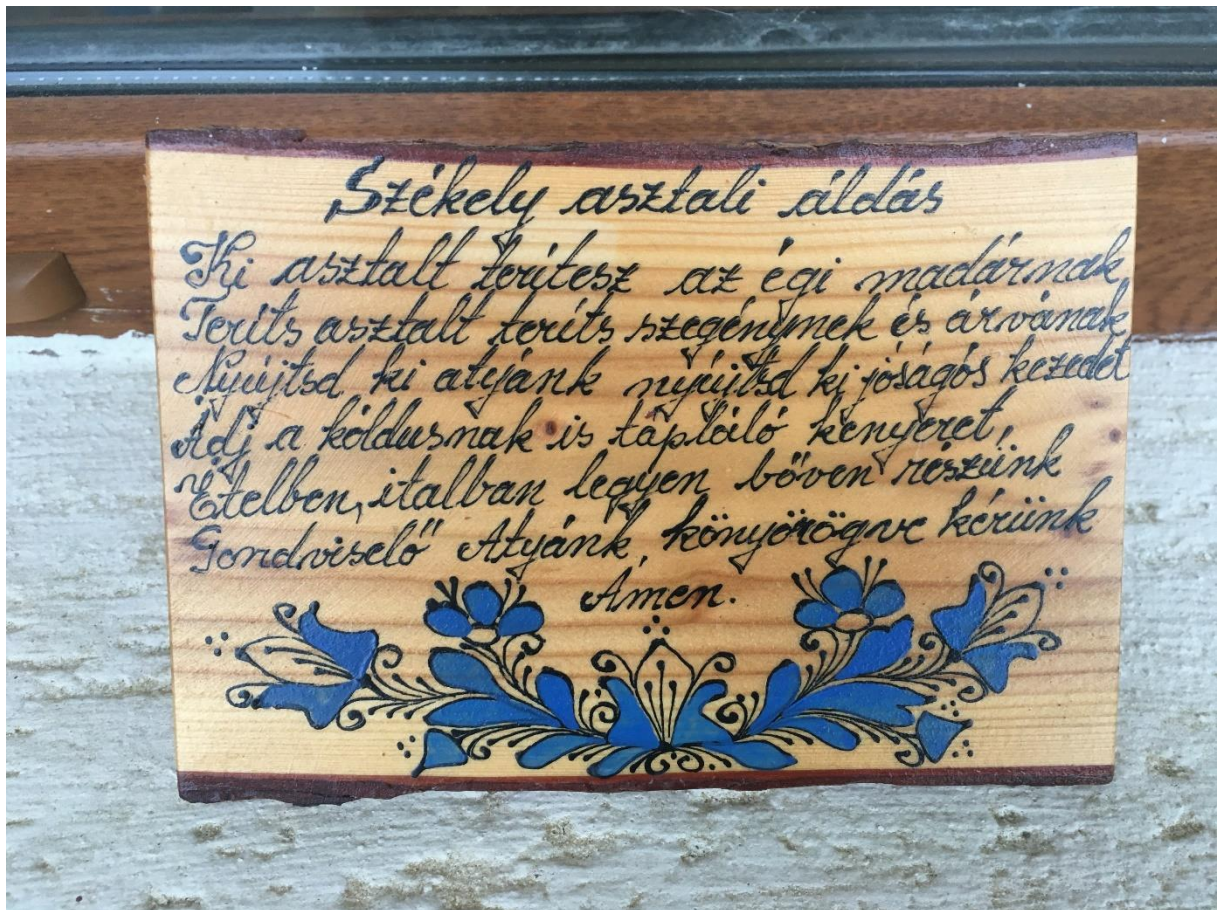 Székely asztali áldás
Ki asztalt terítesz az égi madárnak
Teríts asztalt teríts szegénynek és árvának
Nyújtsd ki atyánk nyújtsd ki jóságós kezedet
Adj a kóldusnak is tápláló kenyeret,
Ételben, italban legyen bőven részünk
Gondviselő Atyánk, könyörögve kérünk
Ámen.